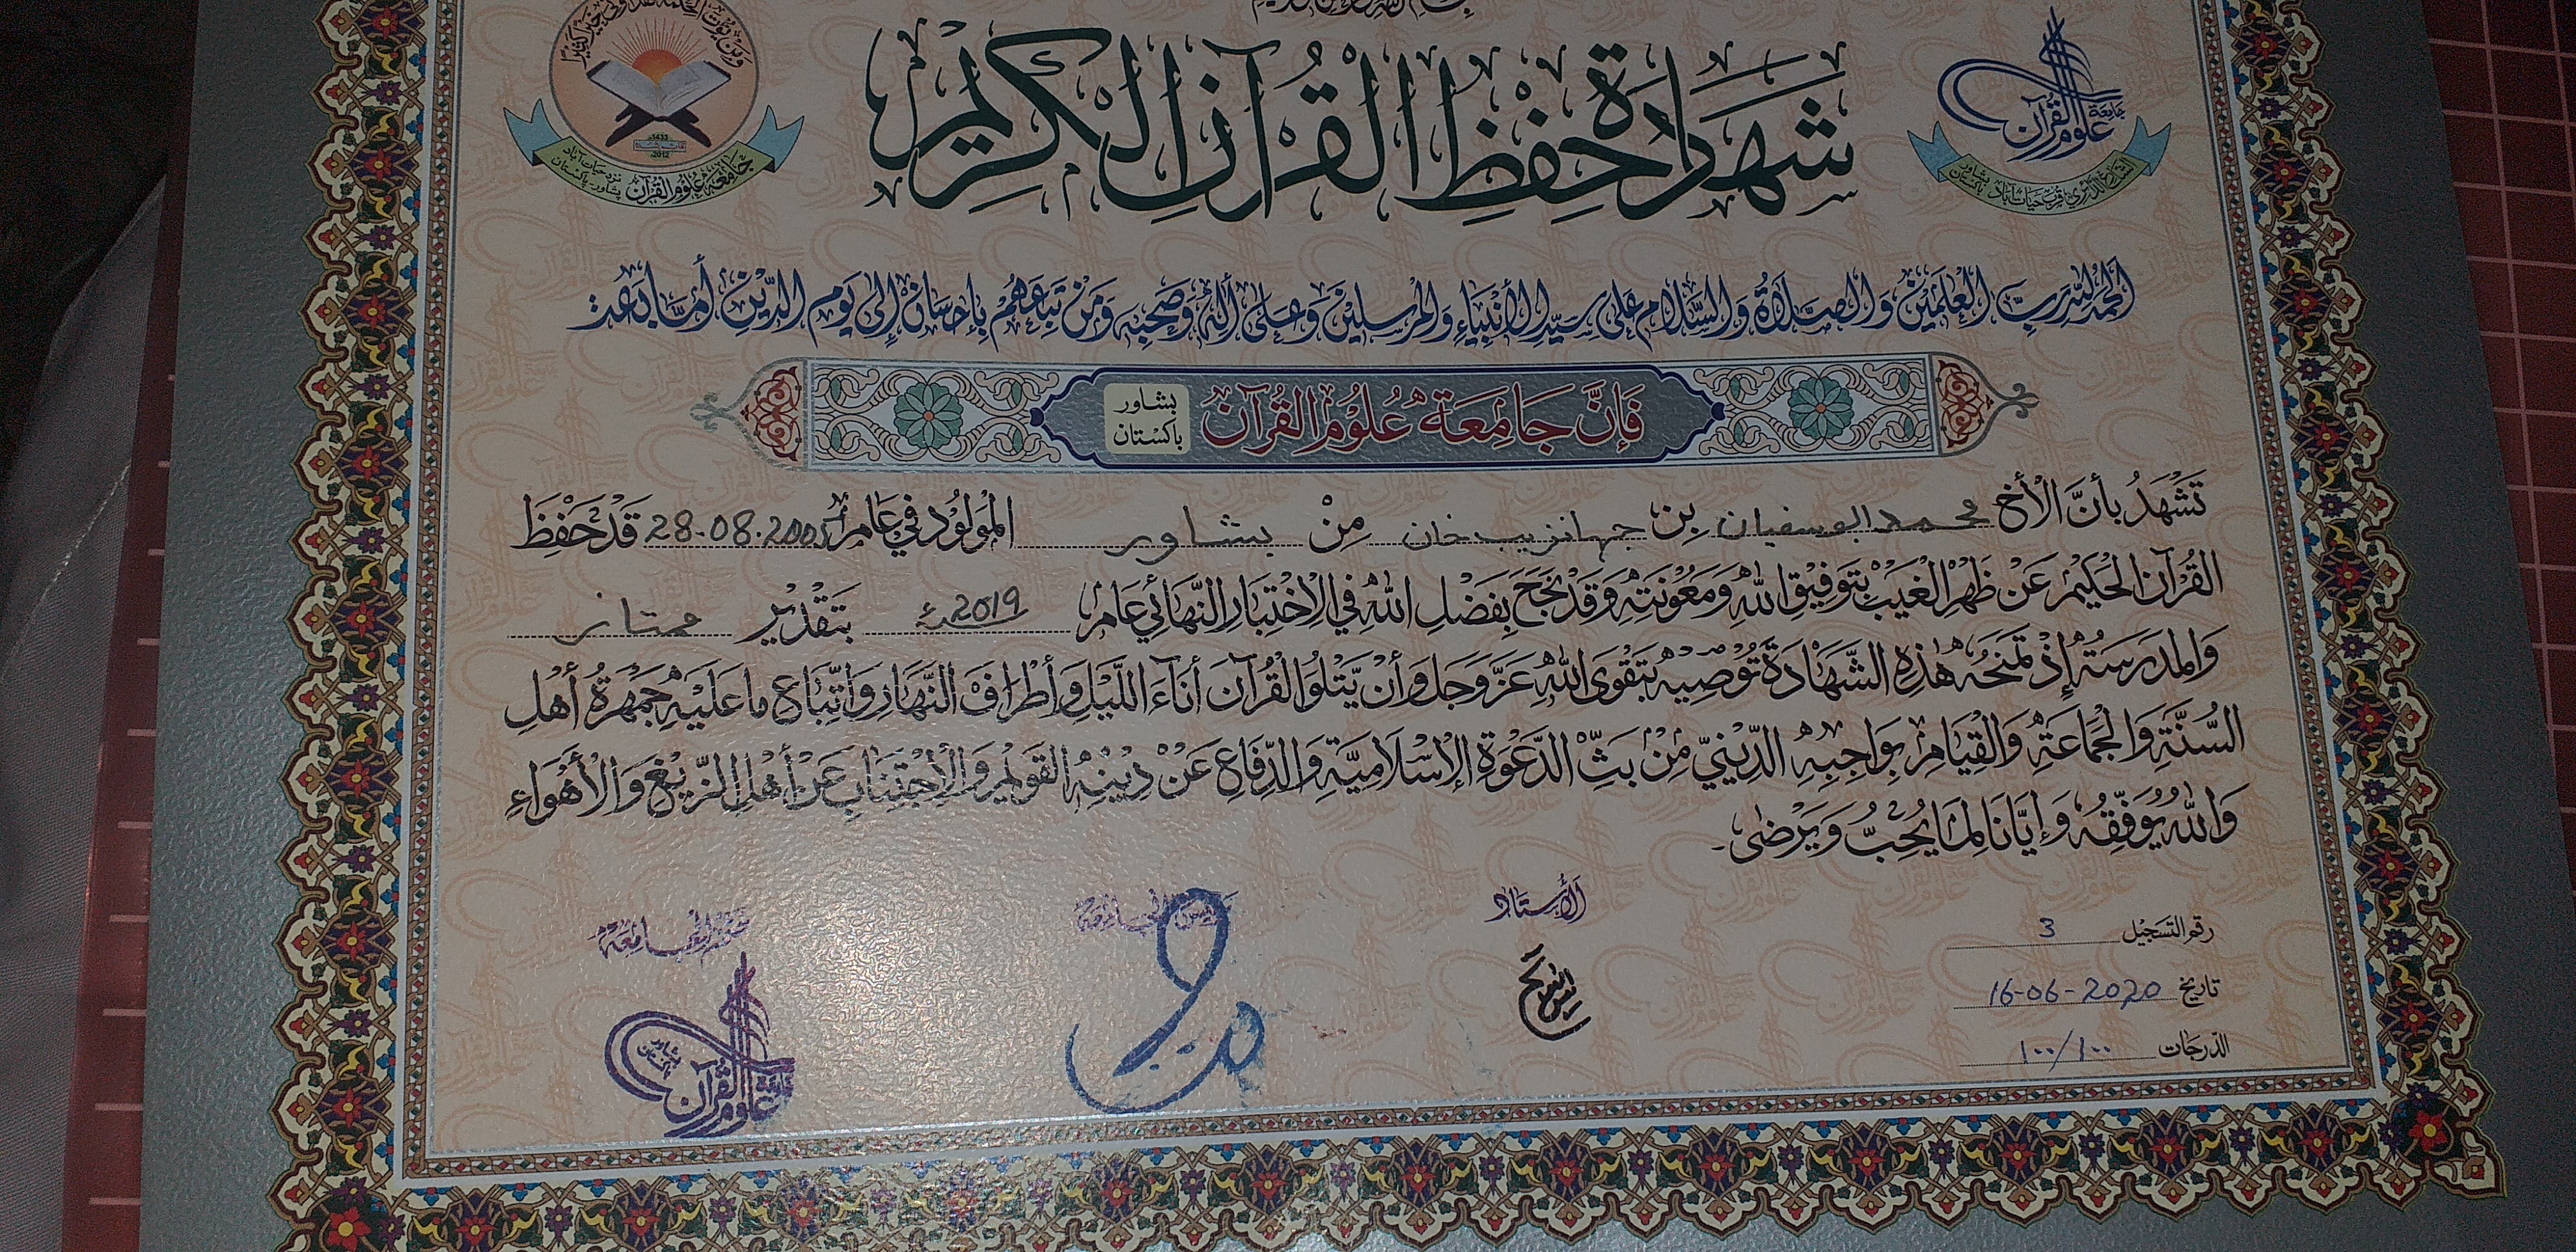 شَهَادَةُ حِفْظِ الْقُرْآنِ الْكَرِيْمِ
جامعة علوم القرآن
الشارع الدائري قرب حيات آباد بشاور باكستان
1433
2012
جَامِعَه عُلُوْمُ القُرآن نزد حیات آباد پشاور۔ پاکستان
اَلْحَمْدُ لِلّٰهِ رَبِّ الْعٰلَمَيْنَ وَالصَّلَاةُ وَالسَّلَامُ عَلٰى سَيِّدِ الْأَنْبِيَاءِ وَالْمُرْسَلِيْنَ وَعَلٰى أٰلِهٖ وَصَحْبِهٖ وَمَنْ تَبِعَهُمْ بِإِحْسَانٍ إِلٰى يَوْمِ الدِّيْنِ أَمَّا بَعْدُ
فَإِنَّ جَامِعَةَ عُلُوْمِ الْقُرآنْ بشاور باكستان
تَشْهَدُ بِأَنَّ الْأَخَ محمد ابوسفیان بن جہانزیب خان مِنْ بشاور المَوْلُوْدِ فِي عَامِ 28.08.2005 قَدْ حَفِظَ
القُرْآنَ الْحَكِيْمَ عَنْ ظَهْرِ الْغَيْبِ بِتَوْفِيْقِ اللّٰهِ وَمَعُوْنَتِهٖ وَقَدْ نَجَحَ بِفَضْلِ اللّٰهِ فِي الْاِخْتِبَارِ النِّهَائِيْ عَامَ 2019ء بِتَقْدِيْرِ ممتاز
وَالمدرسَةُ إِذْ تَمْنَحُهٗ هٰذِهِ الشَّهَادَةَ تُوْصِيْهِ بِتَقْوَى اللّٰهِ عَزَّ وَجَلَّ وَأَنْ يَّتْلُوَ الْقُرآنَ أَنَآءَ اللَّيْلِ وَأَطْرَافَ النَّهَارِ وَاتِّبَاعِ مَا عَلَيْهِ جَمْهَرَةُ أَهْلِ
السُّنَّةِ وَالْجَمَاعَةِ وَالْقِيَامِ بِوَاجِبِهِ الدِّيْنِيِّ مِنْ بَثِّ الدَّعْوَةِ الْإِسْلَامِيَّةِ وَالدِّفَاعِ عَنْ دِيْنِهِ القَوِيْمِ وَالْاِجْتِنَابِ عَنْ أَهْلِ الزَّيْغِ وَالْأَهْوَاءِ
وَاللّٰهُ يُوَفِّقُهٗ وَإِيَّانَا لِمَا يُحِبُّ وَيَرْضٰى۔
رقم التسجيل 3
تاريخ 16-06-2020
الدرجات ١٠٠/١٠٠
الأستاذ
رئيس الجامعة
ختم الجامعة
جامعة علوم القرآن بشاور باكستان